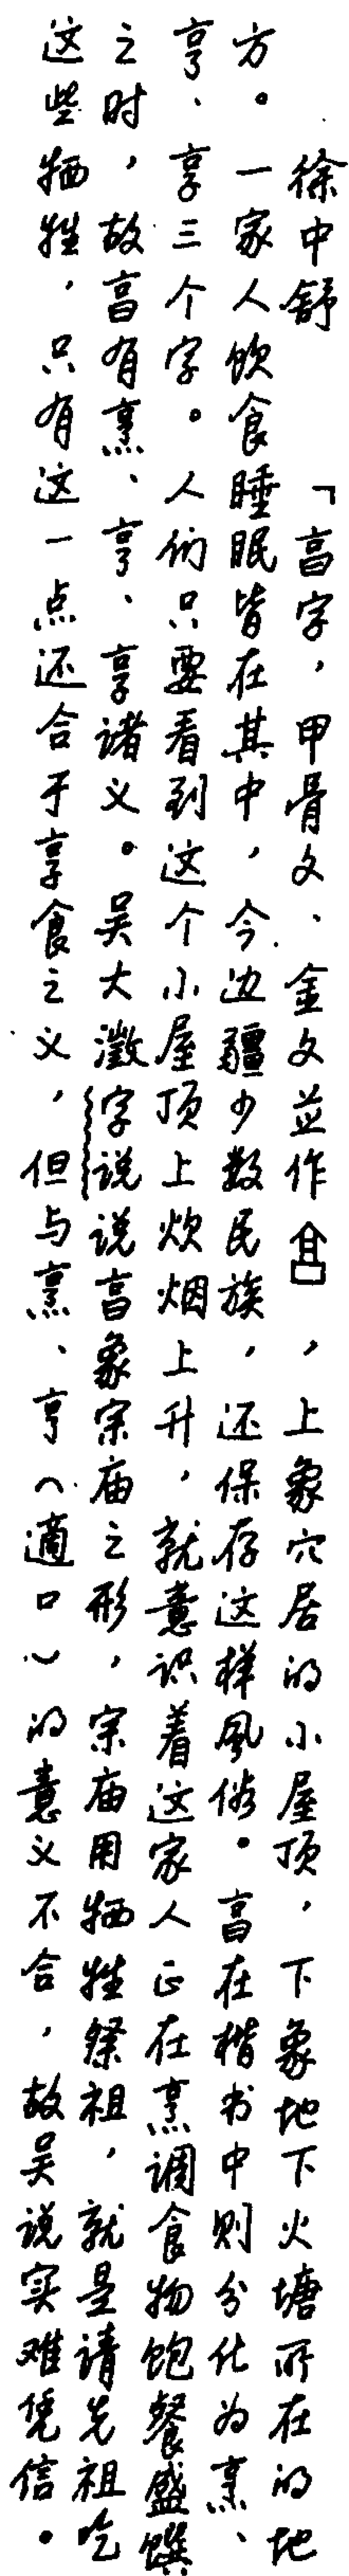 徐中舒 「亯字，甲骨文、金文並作 ，上象穴居的小屋顶，下象地下火塘所在的地
方。一家人饮食睡眠皆在其中，今边疆少数民族，还保存这样风俗。亯在楷书中则分化为烹、
亨、享三个字。人们只要看到这个小屋顶上炊烟上升，就意识着这家人正在烹调食物饱餐盛馔
之时，故亯有烹、亨、享诸义。吴大澂字说说亯象宗庙之形，宗庙用牺牲祭祖，就是请先祖吃
这些牺牲，只有这一点还合于享食之义，但与烹、亨（適口）的意义不合，故吴说实难凭信。